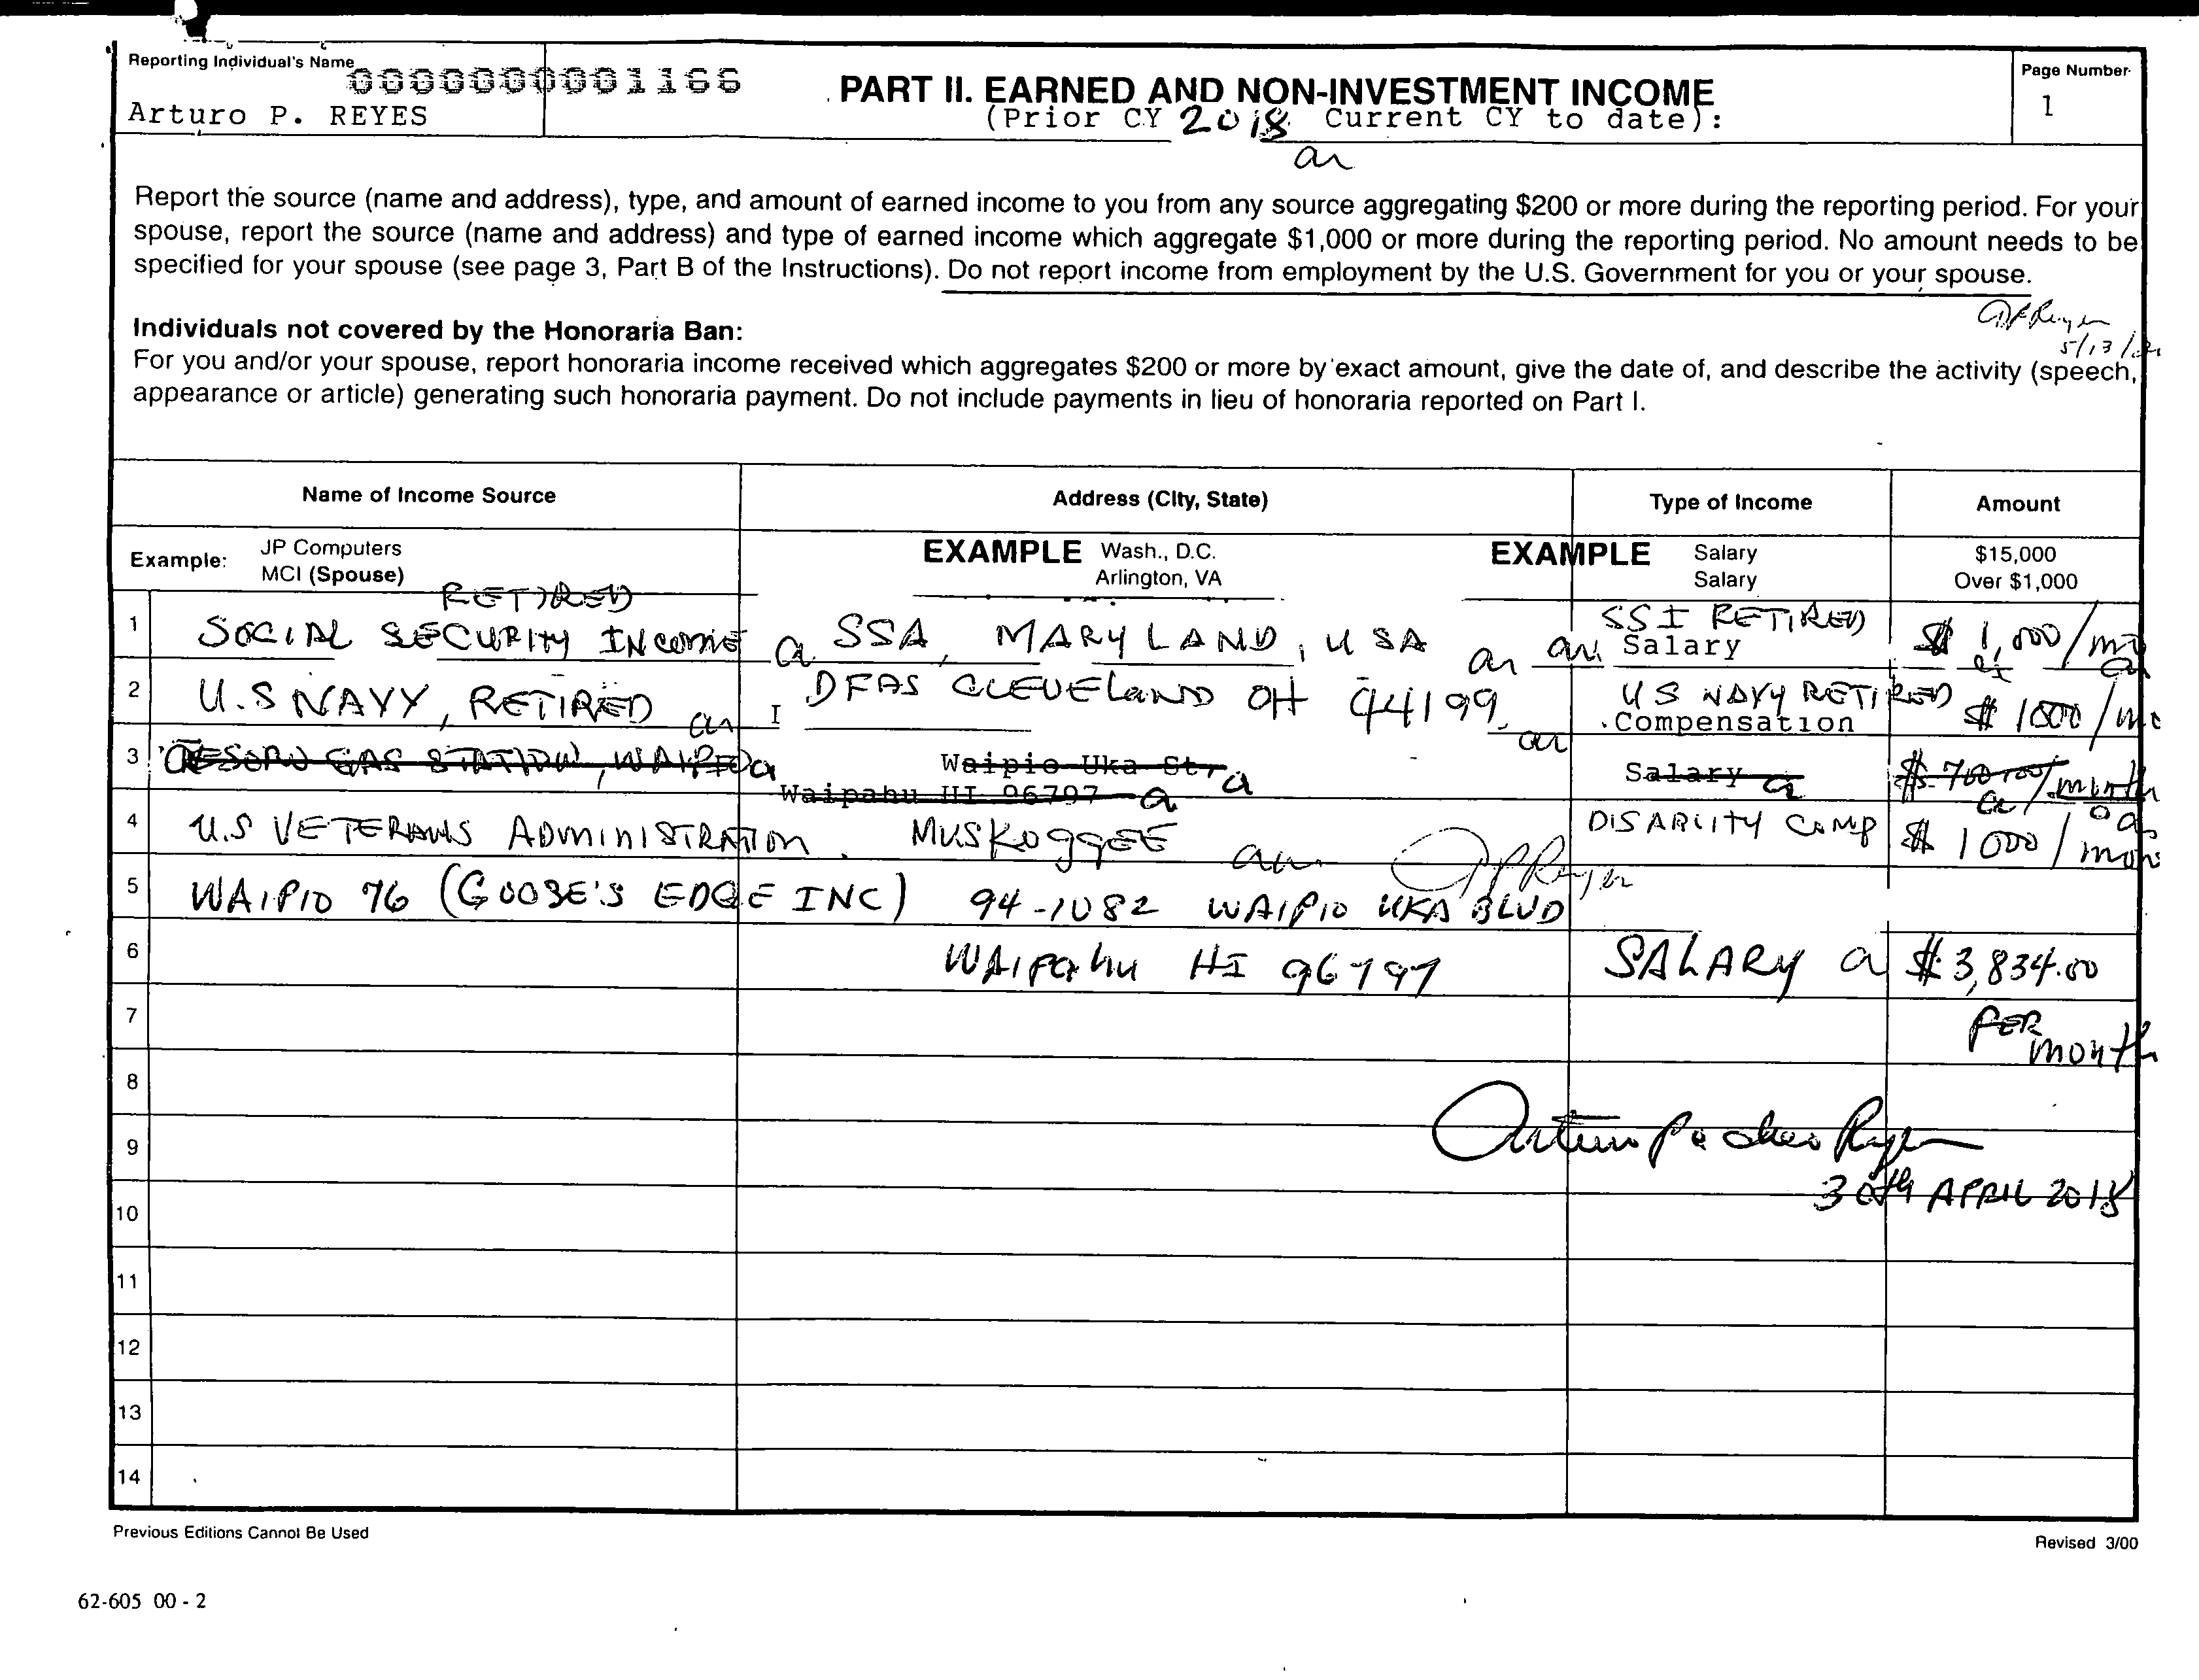 Reporting Individual's Name
0000000001166
Arturo P. REYES
PART II. EARNED AND NON-INVESTMENT INCOME
(Prior CY 2018 Current CY to date):
Page Number
1
Report the source (name and address), type, and amount of earned income to you from any source aggregating $200 or more during the reporting period. For your
spouse, report the source (name and address) and type of earned income which aggregate $1,000 or more during the reporting period. No amount needs to be
specified for your spouse (see page 3, Part B of the Instructions). Do not report income from employment by the U.S. Government for you or your spouse.
Individuals not covered by the Honoraria Ban:
For you and/or your spouse, report honoraria income received which aggregates $200 or more by exact amount, give the date of, and describe the activity (speech,
appearance or article) generating such honoraria payment. Do not include payments in lieu of honoraria reported on Part I.
Name of Income Source Address (City, State) Type of Income Amount
Example: JP Computers EXAMPLE Wash., D.C. EXAMPLE Salary $15,000
MCI (Spouse) Arlington, VA Salary Over $1,000
RETIRED SSI RETIRED
1 SOCIAL SECURITY INCOME SSA, MARYLAND, USA Salary $ 1,000/
2 U.S NAVY, RETIRED DFAS CLEVELAND OH 44199 US NAVY RETIRED $ 1000/
I Compensation
3 GAS STATION, Waipio Uka St, Salary $ 700 /month
Waipahu HI 96797
4 U.S VETERANS ADMINISTRATION MUSKOGGEE DISABILITY COMP $ 1000/
5 WAIPIO 76 (GOOSE'S EDGE INC) 94-1082 WAIPIO UKA BLVD
6 WAIPAHU HI 96797 SALARY $3,834.00
7 PER
month
8
Arturo Pacheo Reyes
9
30th APRIL 2018
10
11
12
13
14
Previous Editions Cannot Be Used
Revised 3/00
62-605 00 - 2